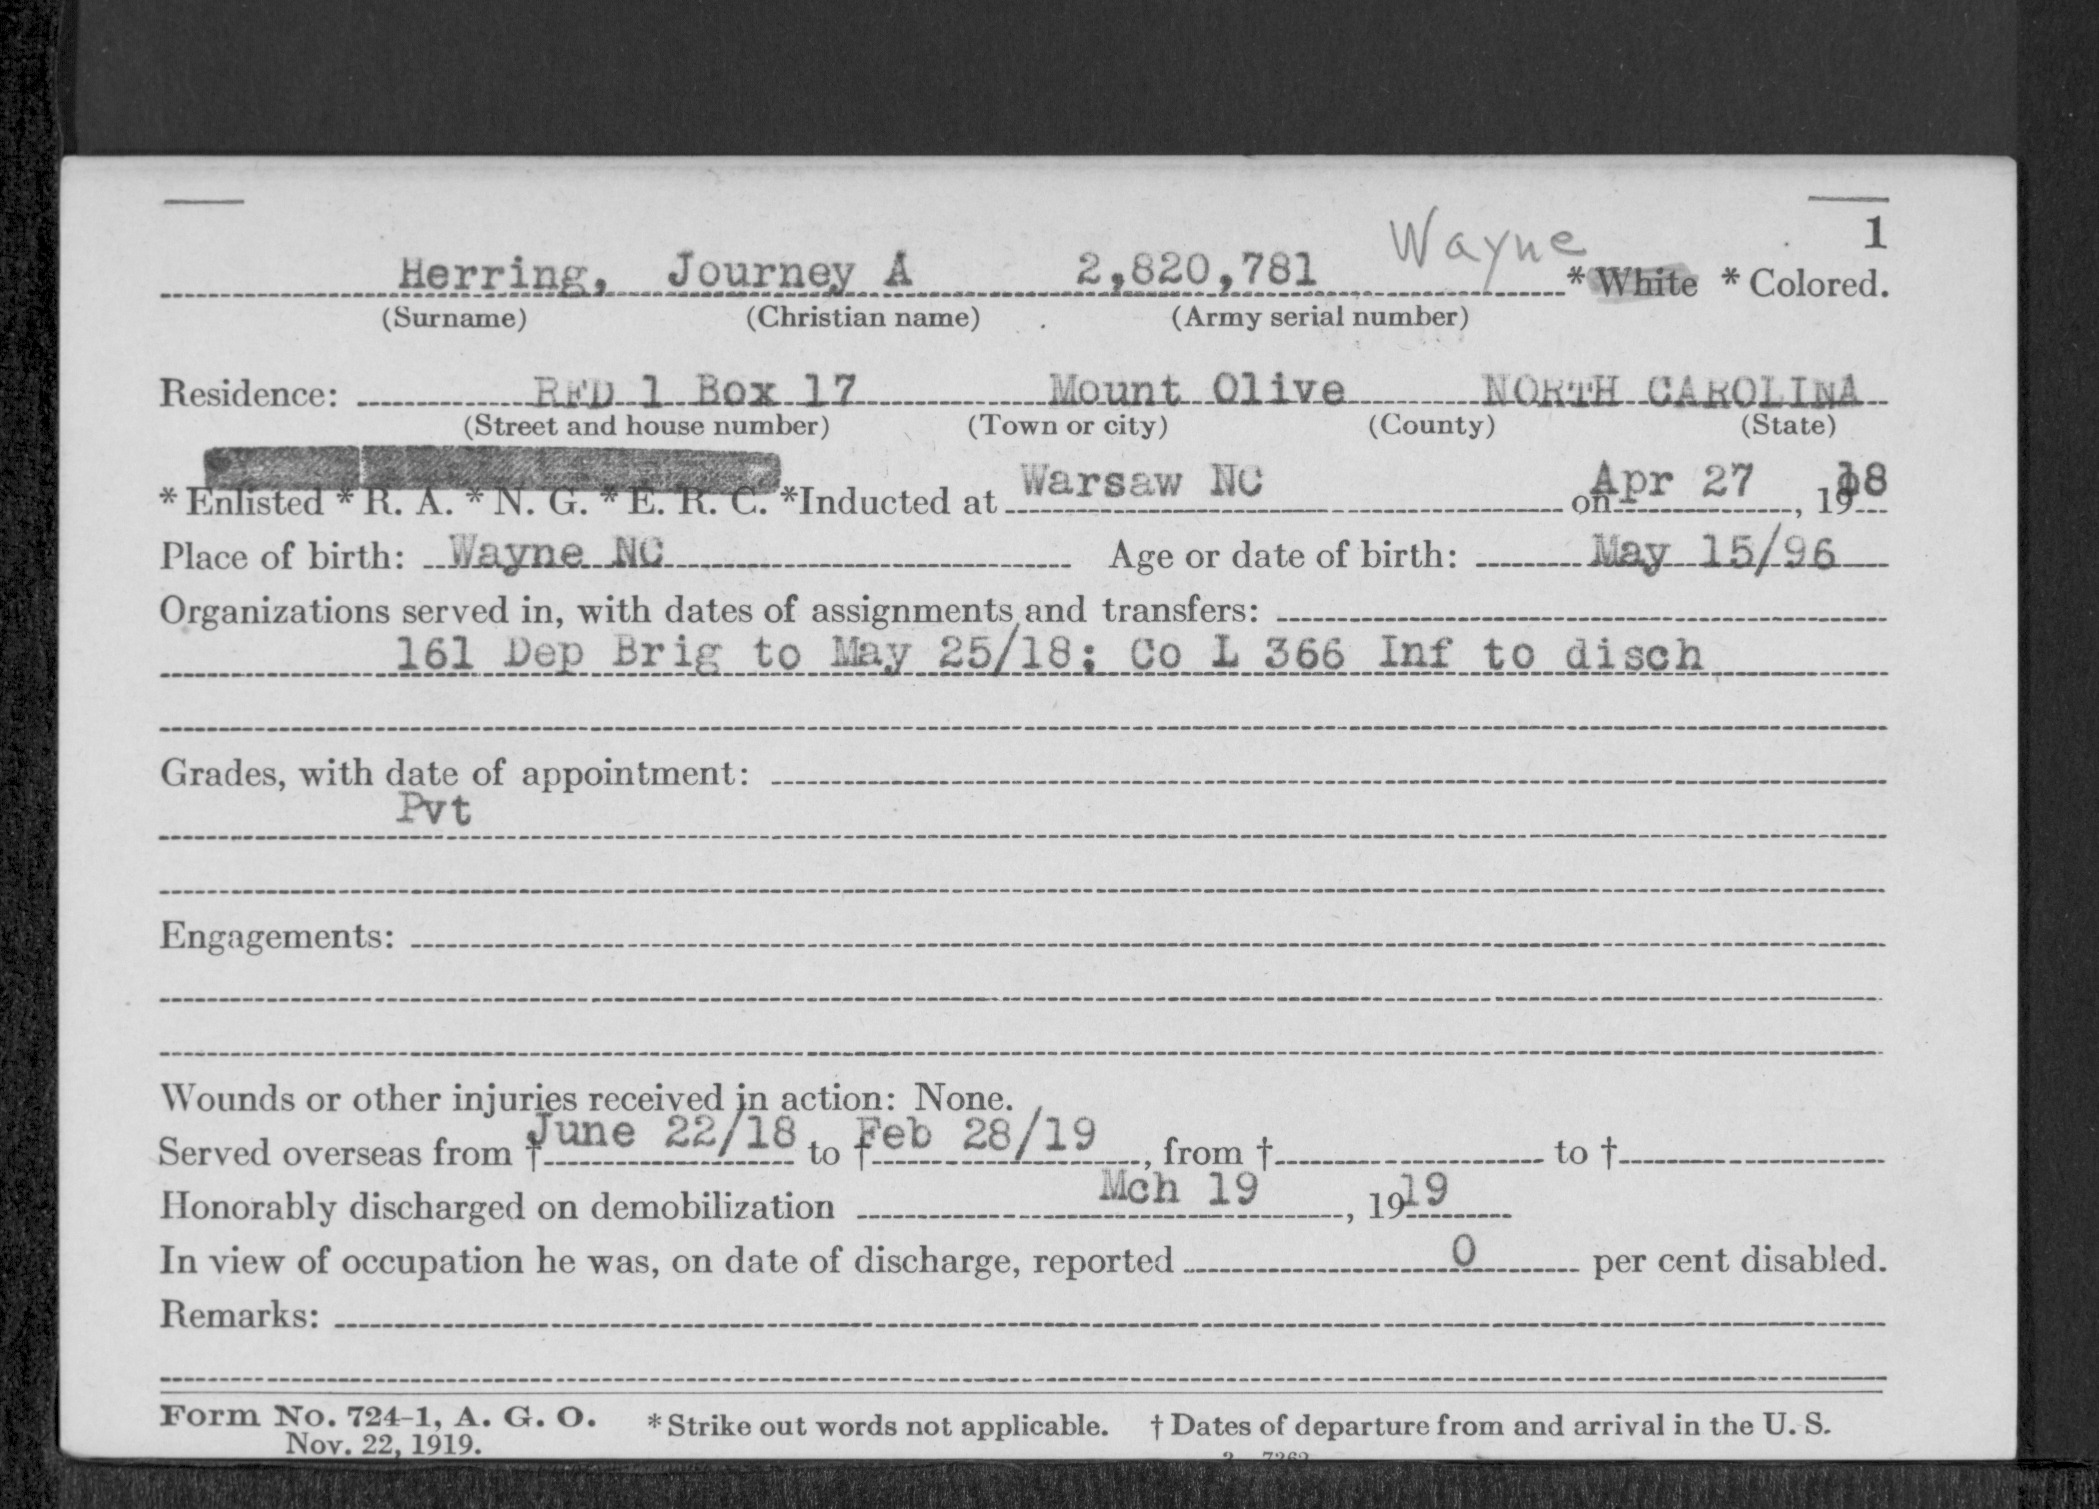 1
Wayne
Herring, Journey A 2,820,781 * White * Colored.
(Surname) (Christian name) (Army serial number)
Residence: RFD 1 Box 17 Mount Olive NORTH CAROLINA
(Street and house number) (Town or city) (County) (State)
* Enlisted * R. A. * N. G. * E. R. C. *Inducted at Warsaw NC on Apr 27, 1918
Place of birth: Wayne NC Age or date of birth: May 15/96
Organizations served in, with dates of assignments and transfers:
161 Dep Brig to May 25/18; Co L 366 Inf to disch
Grades, with date of appointment:
Pvt
Engagements:
Wounds or other injuries received in action: None.
Served overseas from † June 22/18 to † Feb 28/19, from † to †
Honorably discharged on demobilization Mch 19, 1919
In view of occupation he was, on date of discharge, reported 0 per cent disabled.
Remarks:
Form No. 724-1, A. G. O. * Strike out words not applicable. † Dates of departure from and arrival in the U. S.
Nov. 22, 1919.